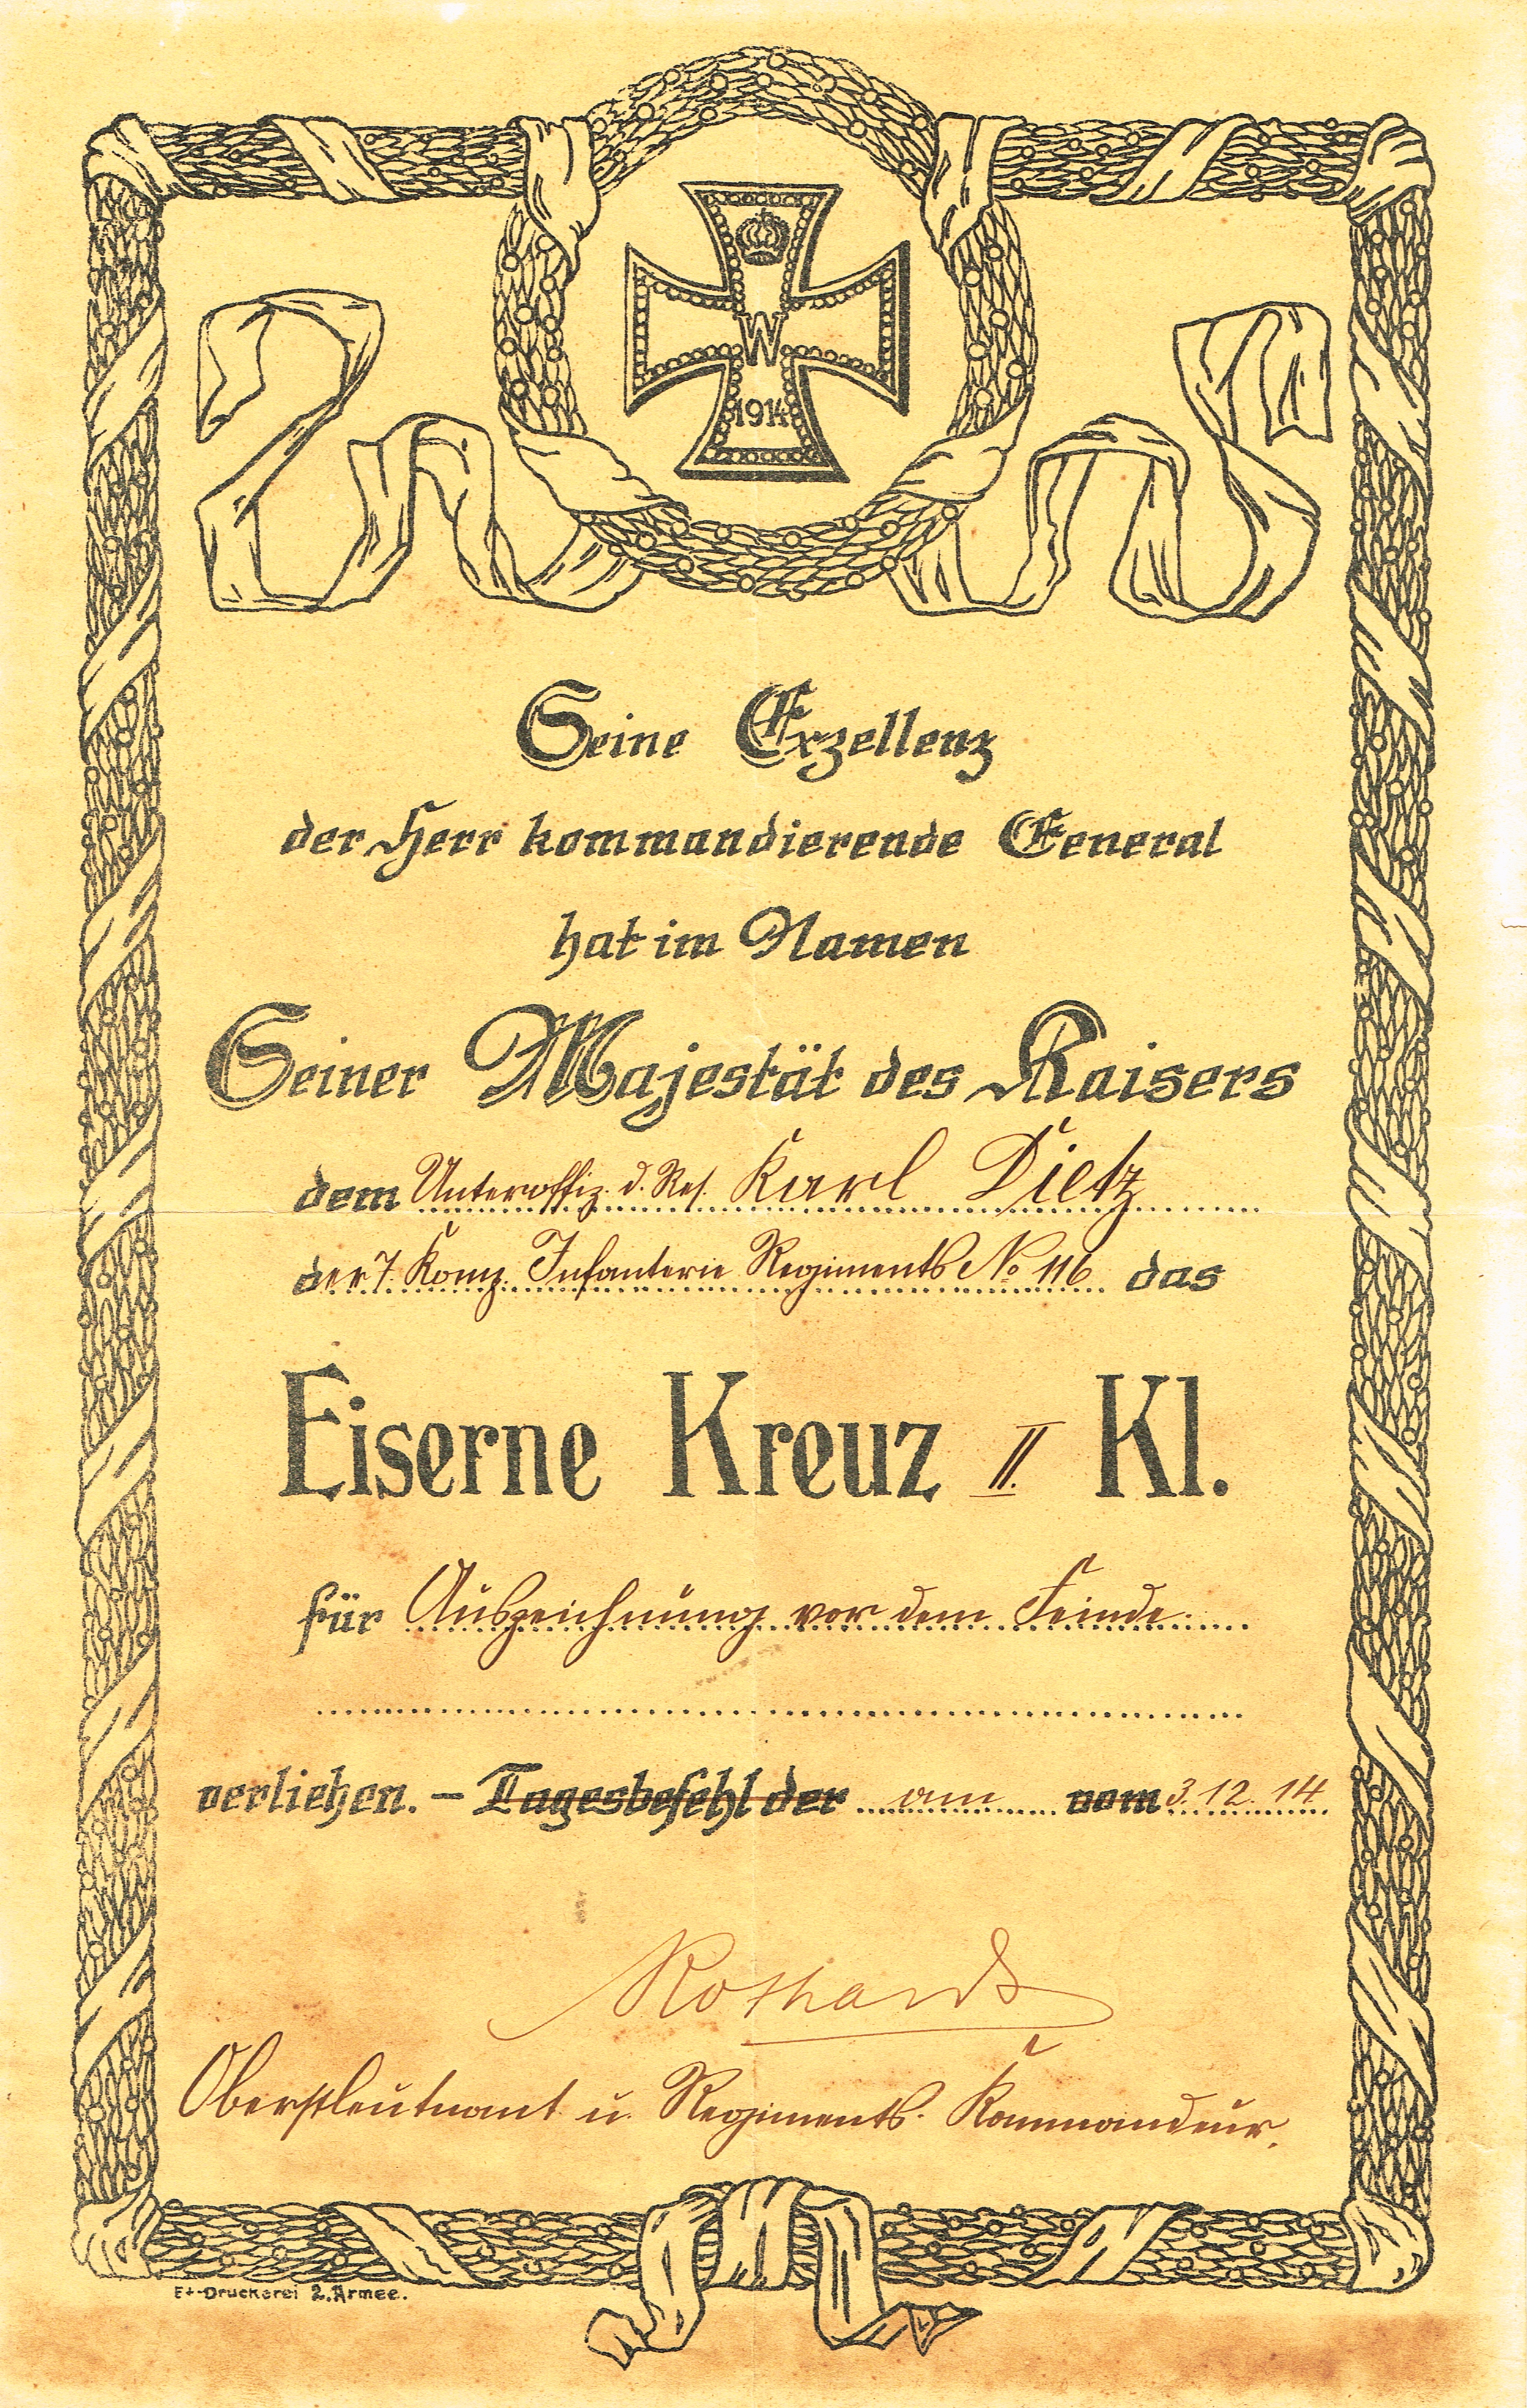 W
1914
Seine Exzellenz
der Herr kommandierende General
hat im Namen
Seiner Majestät des Kaisers
dem Unteroffiz. d. Res. Karl Dietz
der 7. Komp. Infanterie Regiments No 116 das
Eiserne Kreuz II. Kl.
für Auszeichnung vor dem Feinde.
verliehen. – Tagesbefehl der am vom 3.12.14
Oberstleutnant u. Regiments-Kommandeur.
Et-Druckerei 2. Armee.